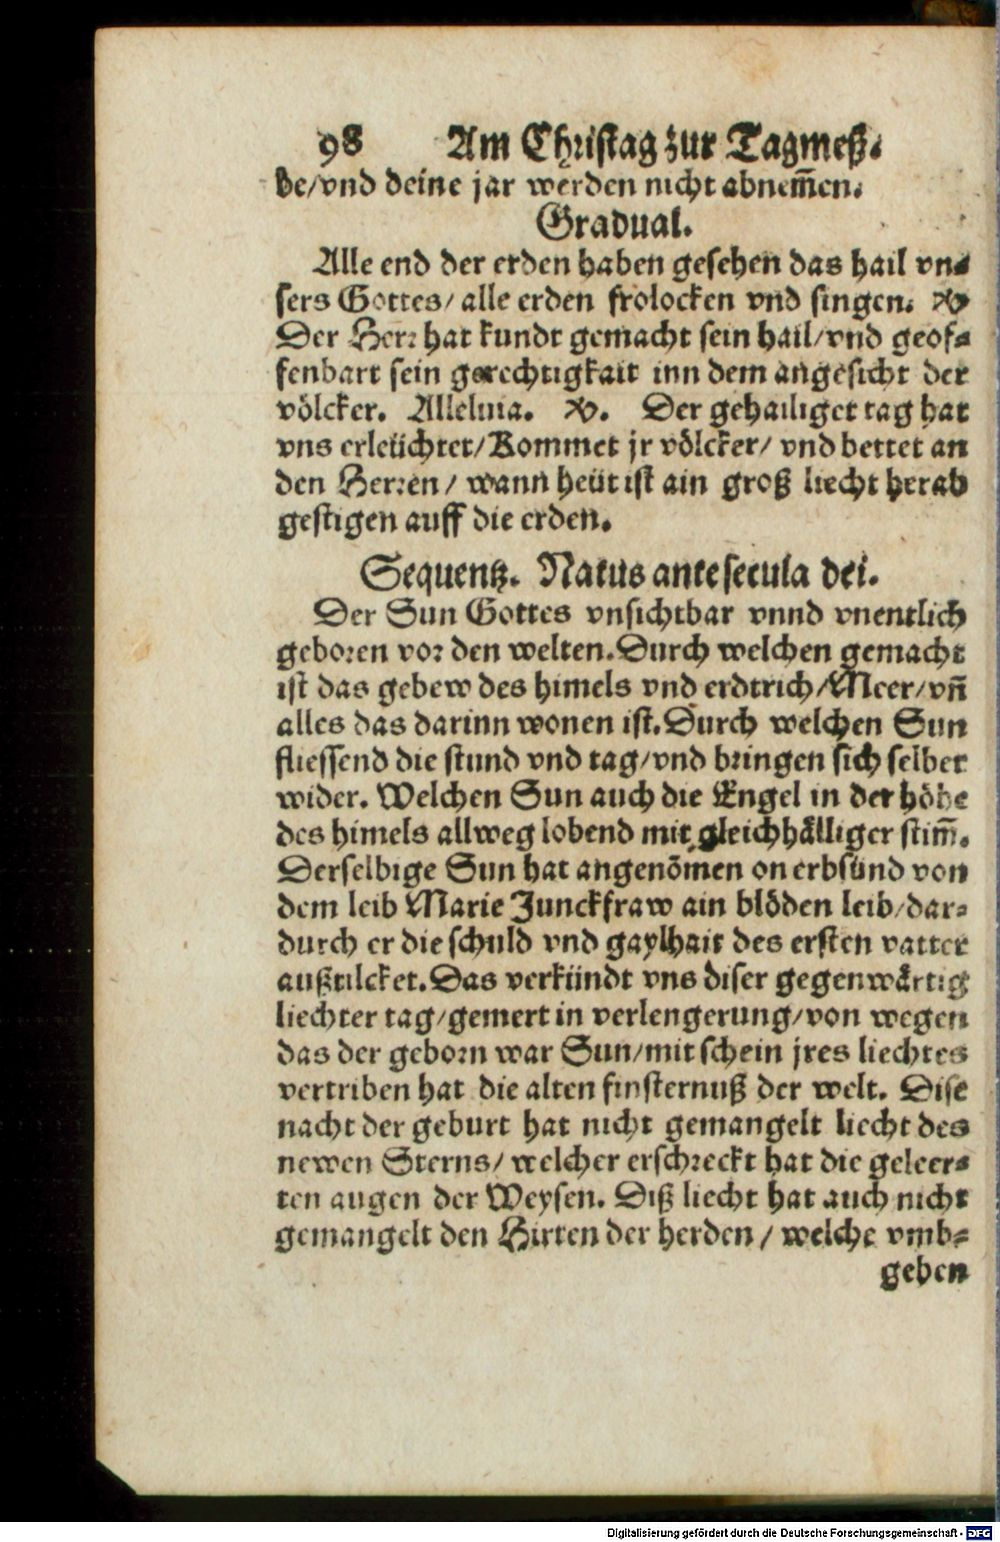 98 Am Christag zur Tagmeß.
de/vnd deine jar werden nicht abnem̃en.
Gradual.
Alle end der erden haben gesehen das hail vn-
sers Gottes/ alle erden frolocken vnd singen. ℣
Der Herr hat kundt gemacht sein hail/vnd geof-
fenbart sein gerechtigkait inn dem angesicht der
völcker. Alleluia. ℣. Der gehailiget tag hat
vns erleüchtet/Kommet jr völcker/ vnd bettet an
den Herren/ wann heüt ist ain groß liecht herab
gestigen auff die erden.
Sequentz. Natus ante secula dei.
Der Sun Gottes vnsichtbar vnnd vnentlich
geboren vor den welten. Durch welchen gemacht
ist das gebew des himels vnd erdtrich/Meer/vñ
alles das darinn wonen ist. Durch welchen Sun
fliessend die stund vnd tag/vnd bringen sich selber
wider. Welchen Sun auch die Engel in der höhe
des himels allweg lobend mit gleichhålliger stim̃.
Derselbige Sun hat angenõmen on erbsünd von
dem leib Marie Junckfraw ain blöden leib/dar-
durch er die schuld vnd gaylhait des ersten vatter
außtilcket. Das verkündt vns diser gegenwårtig
liechter tag/gemert in verlengerung/von wegen
das der geborn war Sun/mit schein jres liechtes
vertriben hat die alten finsternuß der welt. Dise
nacht der geburt hat nicht gemangelt liecht des
newen Sterns/ welcher erschreckt hat die geleer-
ten augen der Weysen. Diß liecht hat auch nicht
gemangelt den Hirten der herden/ welche vmb-
geben
Digitalisierung gefördert durch die Deutsche Forschungsgemeinschaft - DFG